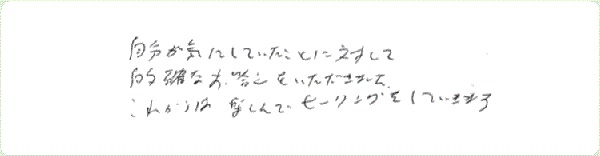 自分が気にしていたことに対して
的確なお答えをいただきました。
これからは楽しんでヒーリングをしていきます